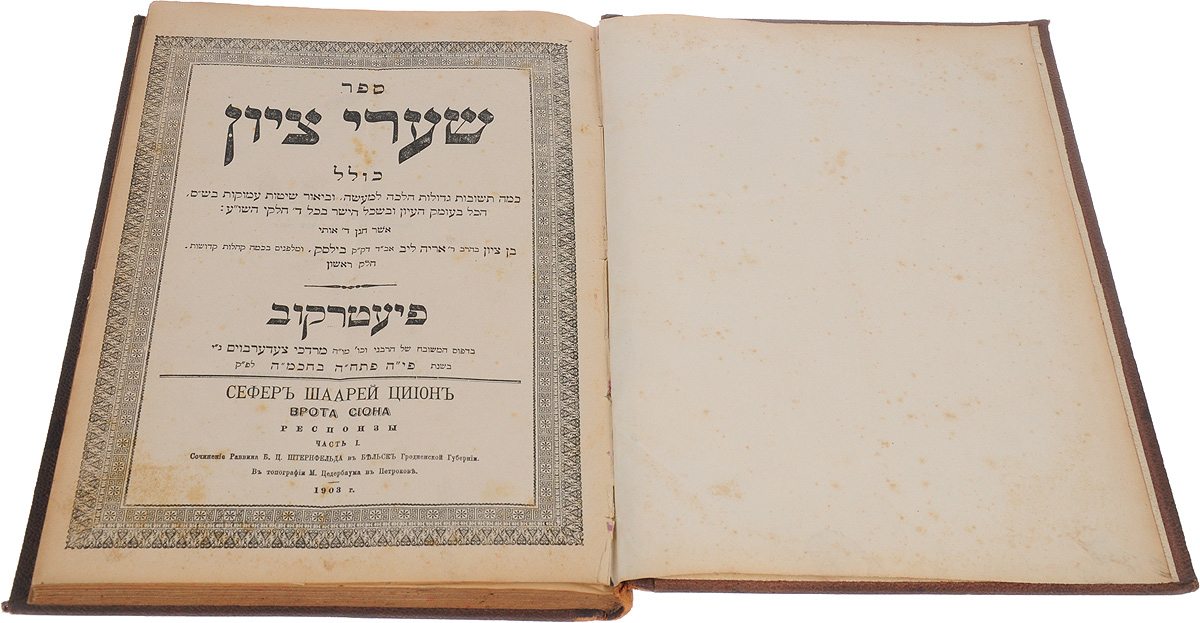 ספר
שערי ציון
כולל
כמה תשובות גדולות הלכה למעשה, וביאור שיטות עמוקות בש״ס,
הכל בעומק העיון ובשכל הישר בכל ד׳ חלקי השו״ע:
אשר חנן ד׳ אותי
בן ציון בהרב ר׳ אריה ליב אב״ד דק״ק בילסק. ומלפנים בכמה קהלות קדושות.
חלק ראשון
פיעטרקוב
בדפוס המשובח של הרבני וכו׳ מו״ה מרדכי צעדערבוים נ״י
בשנת פי״ה פתח״ה בחכמ״ה לפ״ק
СЕФЕРЪ ШААРЕЙ ЦІІОНЪ
ВРОТА СІОНА
РЕСПОНЗЫ
ЧАСТЬ I.
Сочиненія Раввина Б. Ц. ШТЕРНФЕЛЬДА въ БѢЛЬСКЪ Гродненской Губерніи.
Въ топографіи М. Цедербаума въ Петроковѣ.
1903 г.